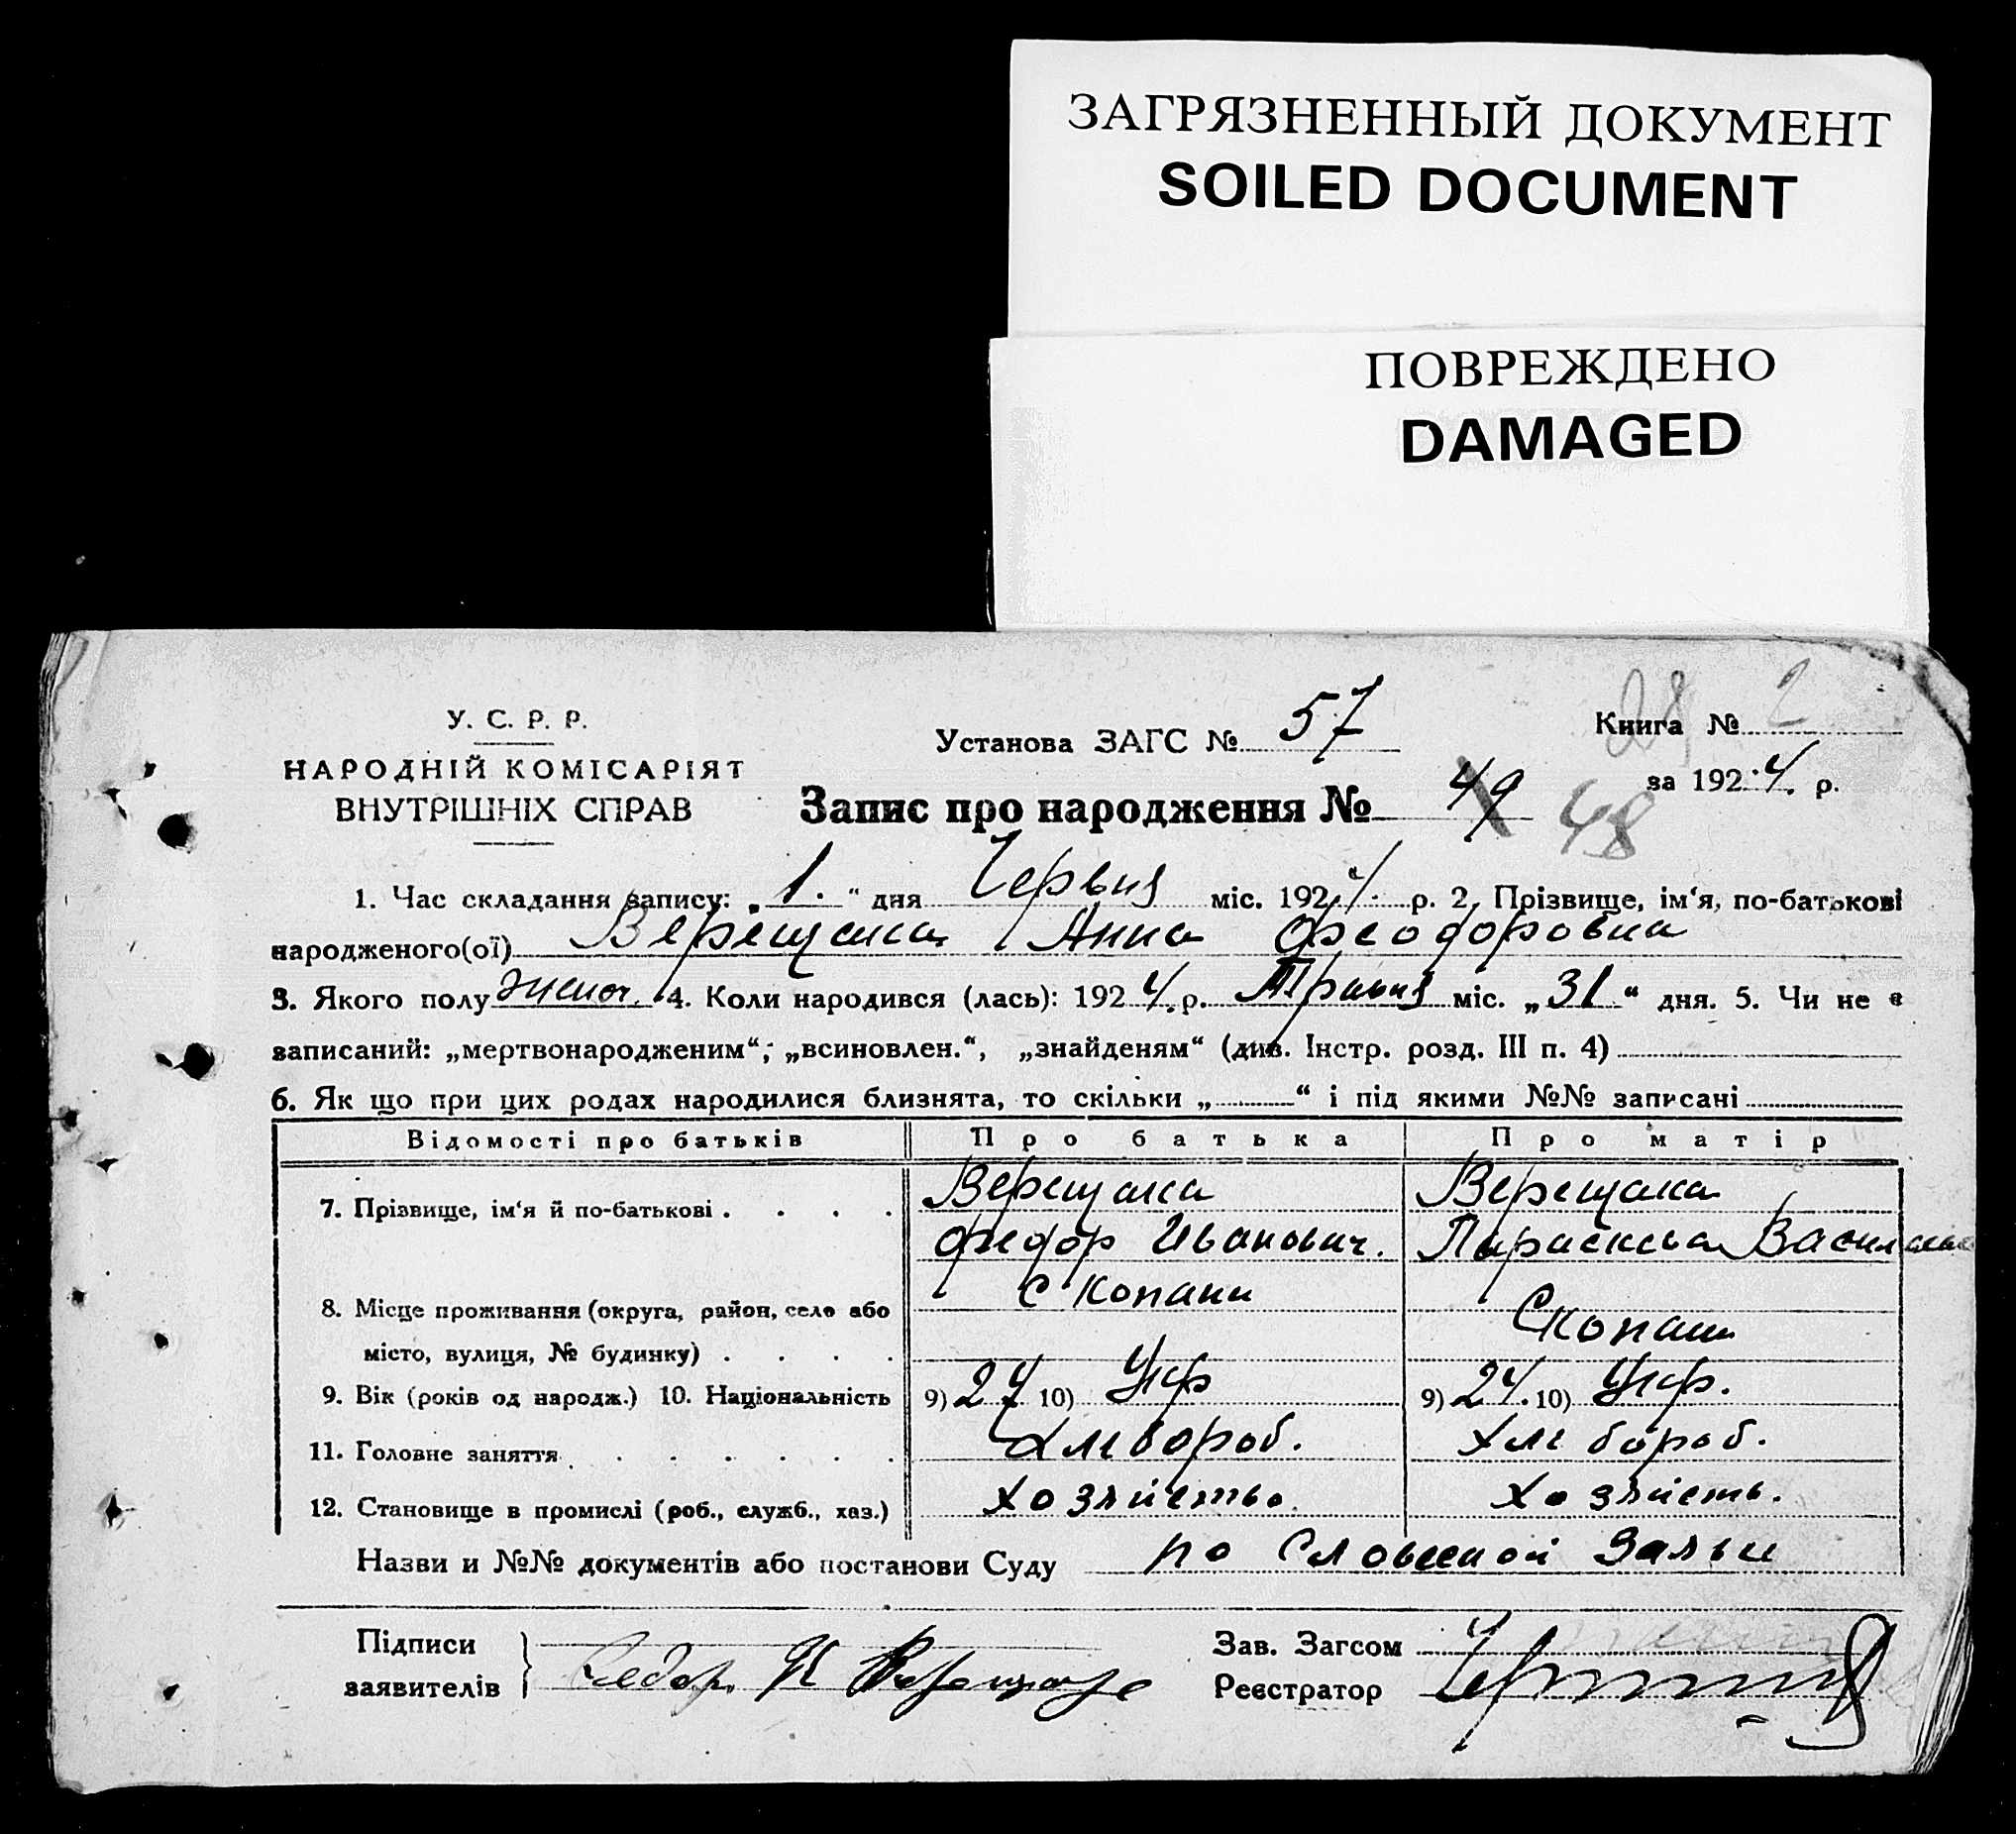 ЗАГРЯЗНЕННЫЙ ДОКУМЕНТ
SOILED DOCUMENT
ПОВРЕЖДЕНО
DAMAGED
28 2
У. С. Р. Р.
НАРОДНІЙ КОМІСАРІЯТ
ВНУТРІШНІХ СПРАВ
Установа ЗАГС № 57
Книга №
за 1924. р.
Запис про народження № 49 48
1. Час складання запису: „1.“ дня Червня міс. 1924. р. 2. Прізвище, ім‘я, по-батькові
народженого(ої) Верещака Анна Феодоровна
3. Якого полу женоч. 4. Коли народився (лась): 1924. р. Травня міс. „31“ дня. 5. Чи не є
записаний: „мертвонародженим“; „всиновлен.“, „знайденям“ (див. Інстр. розд. III п. 4)
6. Як що при цих родах народилися близнята, то скільки „ “ і під якими №№ записані
Відомості про батьків Про батька Про матір
7. Прізвище, ім‘я й по-батькові . . . . Верещака Верещака
Федор Иванович. Параскева
8. Місце проживання (округа, район, село або С Копани
місто, вулиця, № будинку) . . . . С Копани
9. Вік (років од народж.) 10. Національність 9) 27 10) Укр 9) 24. 10) Укр.
11. Головне заняття . . . . . . Хлібороб. Хлібороб.
12. Становище в промислі (роб., служб., хаз.) Хозяйство. Хозяйств.
Назви и №№ документів або постанови Суду по Словесной Заяви
Підписи
заявителів Федор И Верещака
Зав. Загсом
Реєстратор